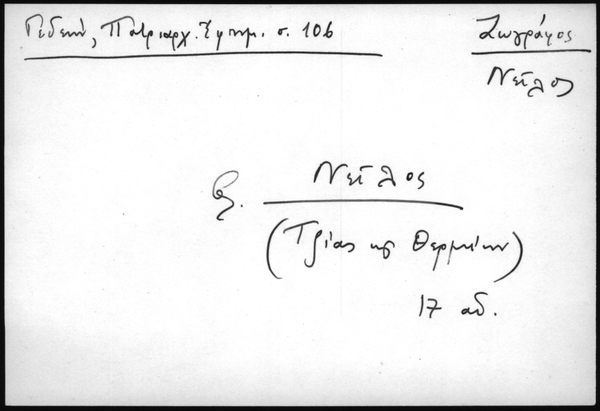 Γεδεών, Πατριαρχ. Εφημ. σ. 106
Ζωγράφος
Νεῖλος
βλ. Νεῖλος
(Τζίας κ Θερμιῶν)
17 αἰ.